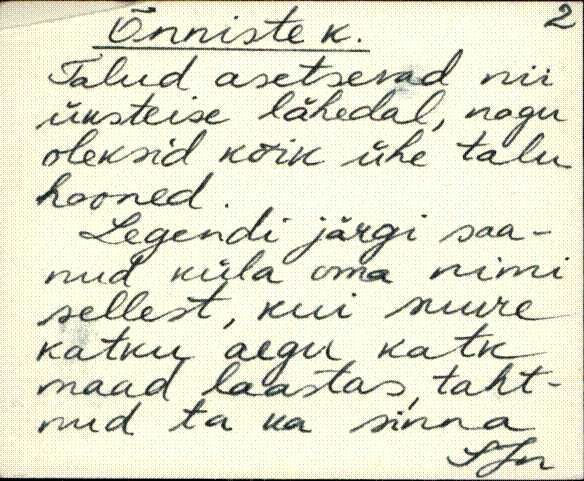 Õnniste k.
2
Talud asetsevad nii
üksteise lähedal, nagu
oleksid kõik ühe talu
hooned.
Legendi järgi saa-
nud küla oma nimi
sellest, kui suure
katku aegu katk
maad laastas, taht-
nud ta ka sinna